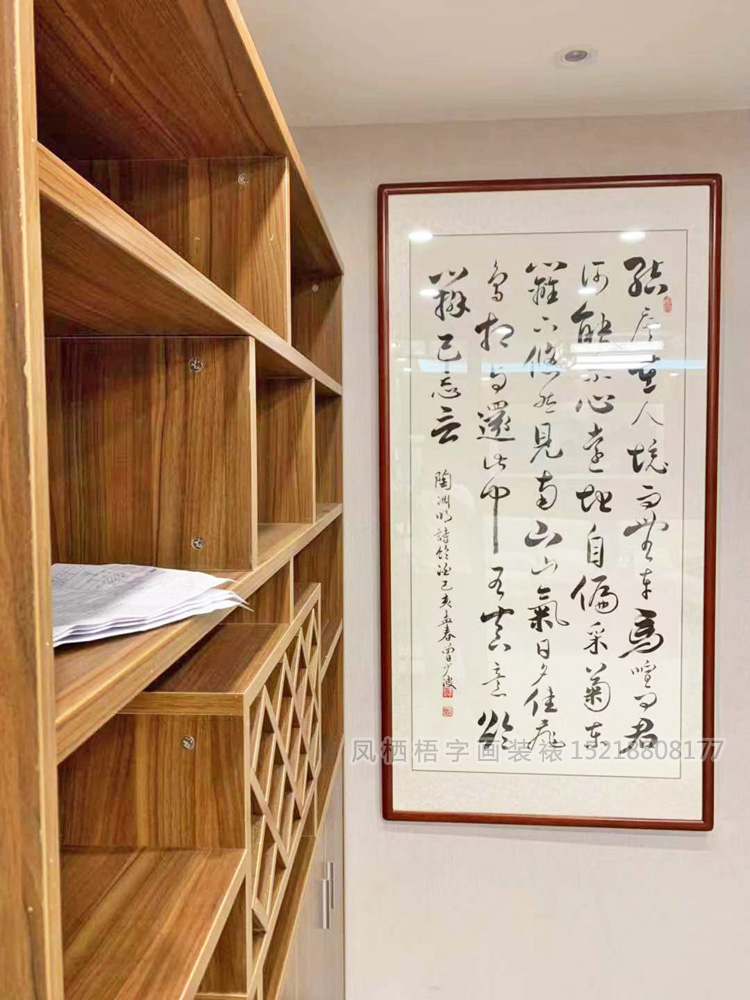 結廬在人境而無車馬喧问君
何能爾心遠地自偏采菊東
籬下悠然見南山山氣日夕佳飛
鳥相与還此中有真意欲
辨已忘言
陶渊明詩飲酒己亥孟春曾少波
凤栖梧字画装裱15218808177